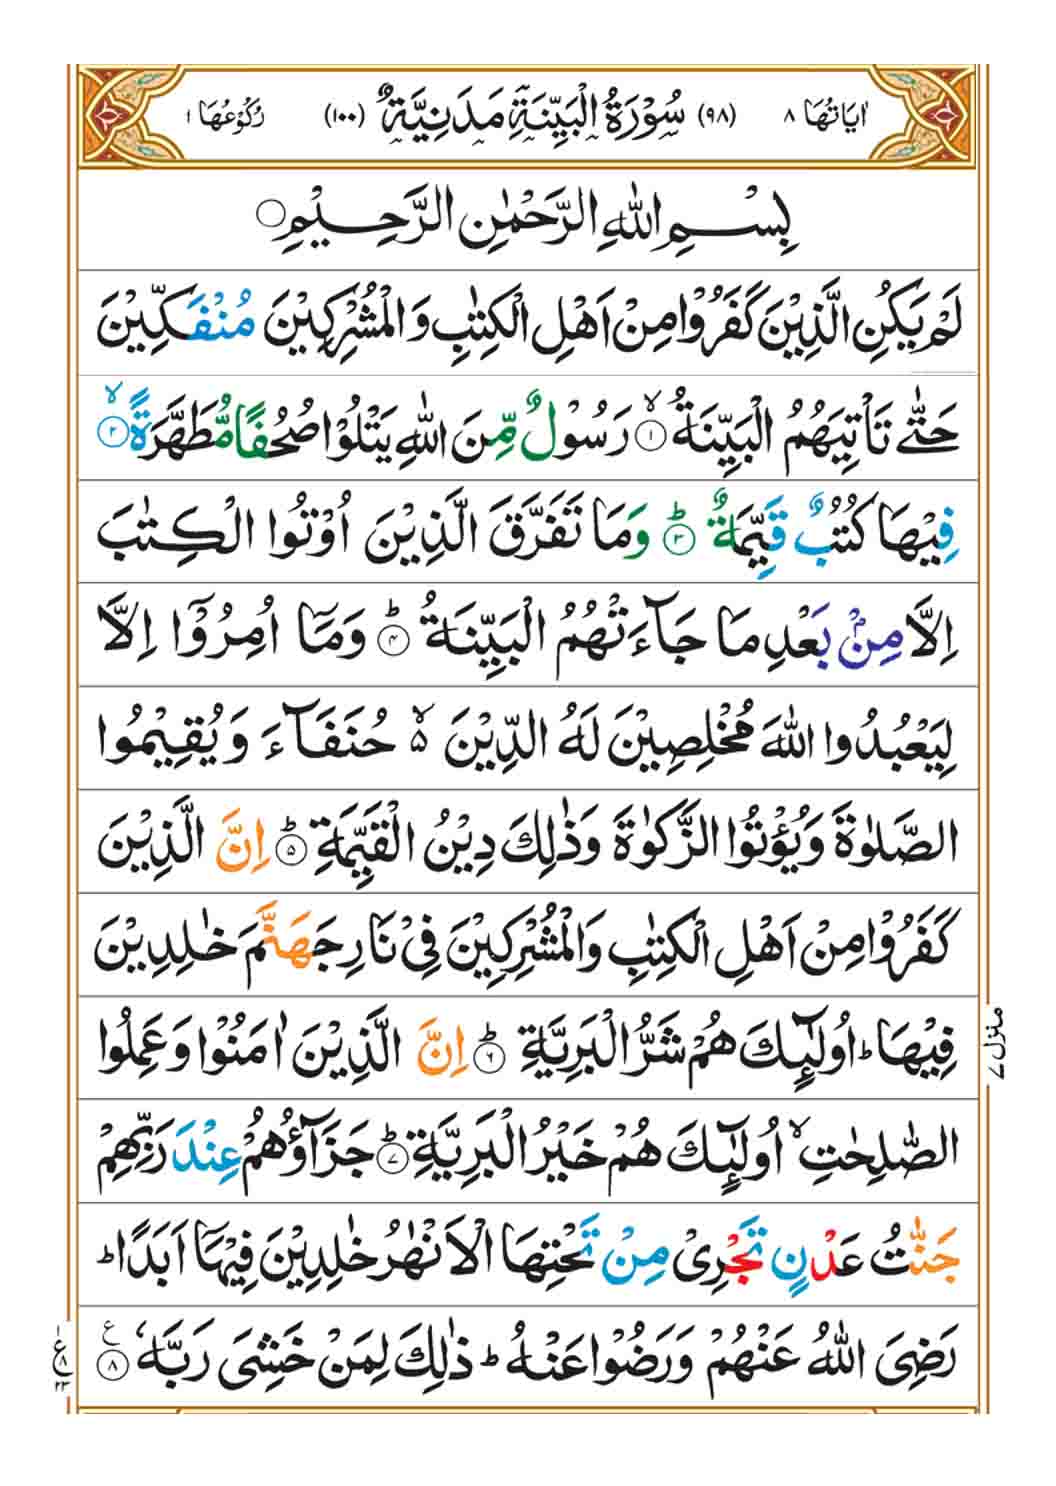 اٰيَاتُهَا ٨ (٩٨) سُوْرَةُ الْبَيِّنَةِ مَدَنِيَّةٌ (١٠٠) رُكُوْعُهَا ١
بِسْمِ اللّٰهِ الرَّحْمٰنِ الرَّحِيْمِ ۝
لَمْ يَكُنِ الَّذِيْنَ كَفَرُوْا مِنْ اَهْلِ الْكِتٰبِ وَ الْمُشْرِكِيْنَ مُنْفَكِّيْنَ
حَتّٰى تَاْتِيَهُمُ الْبَيِّنَةُ ۙ‏﴿۱﴾ رَسُوْلٌ مِّنَ اللّٰهِ يَتْلُوْا صُحُفًا مُّطَهَّرَةً ۙ‏﴿۲﴾
فِيْهَا كُتُبٌ قَيِّمَةٌ ؕ‏﴿۳﴾ وَمَا تَفَرَّقَ الَّذِيْنَ اُوْتُوا الْكِتٰبَ
اِلَّا مِنْۢ بَعْدِ مَا جَآءَتْهُمُ الْبَيِّنَةُ ؕ‏﴿۴﴾ وَمَاۤ اُمِرُوْۤا اِلَّا
لِيَعْبُدُوا اللّٰهَ مُخْلِصِيْنَ لَهُ الدِّيْنَ ۙ۵ حُنَفَآءَ وَيُقِيْمُوا
الصَّلٰوةَ وَيُؤْتُوا الزَّكٰوةَ وَذٰلِكَ دِيْنُ الْقَيِّمَةِ ؕ‏﴿۵﴾ اِنَّ الَّذِيْنَ
كَفَرُوْا مِنْ اَهْلِ الْكِتٰبِ وَالْمُشْرِكِيْنَ فِيْ نَارِ جَهَنَّمَ خٰلِدِيْنَ
فِيْهَا ؕ اُولٰٓئِكَ هُمْ شَرُّ الْبَرِيَّةِ ؕ‏﴿۶﴾ اِنَّ الَّذِيْنَ اٰمَنُوْا وَعَمِلُوا
منزل ۷
الصّٰلِحٰتِ ۙ اُولٰٓئِكَ هُمْ خَيْرُ الْبَرِيَّةِ ؕ‏﴿۷﴾ جَزَآؤُهُمْ عِنْدَ رَبِّهِمْ
جَنّٰتُ عَدْنٍ تَجْرِيْ مِنْ تَحْتِهَا الْاَنْهٰرُ خٰلِدِيْنَ فِيْهَاۤ اَبَدًا ؕ
رَضِيَ اللّٰهُ عَنْهُمْ وَرَضُوْا عَنْهُ ؕ ذٰلِكَ لِمَنْ خَشِيَ رَبَّهٗ ﴿۸﴾ ع
١
ع ٨
٢٣